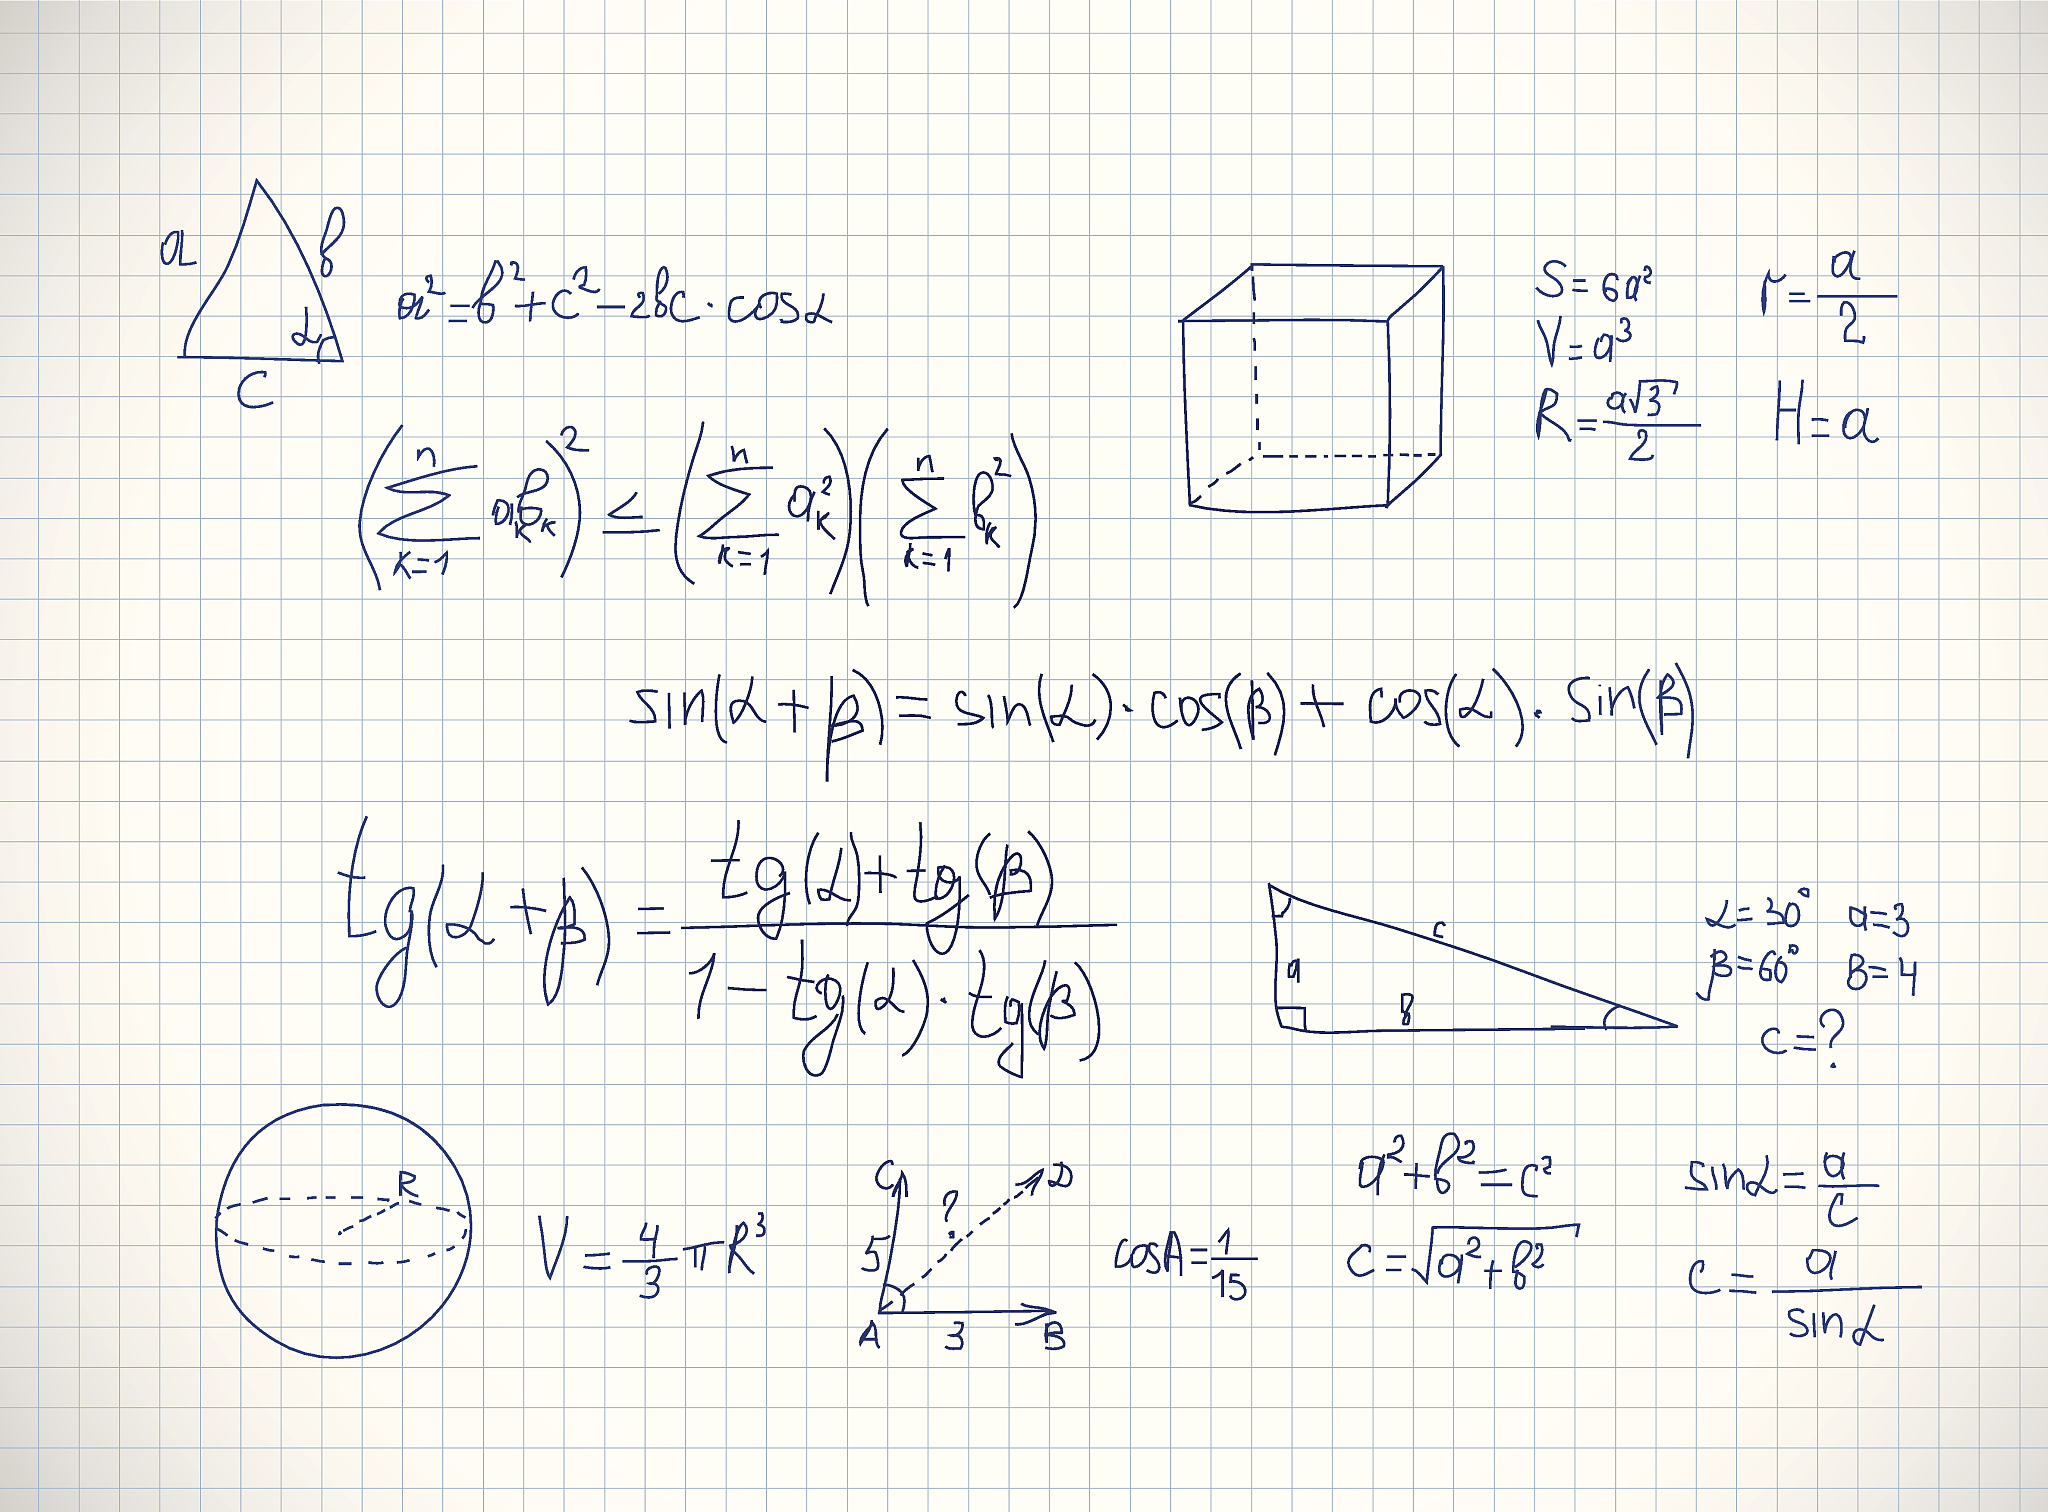 a
b
α
c
a²=b²+c²-2bc·cosα
S=6a²
V=a³
R=a√3/2
r=a/2
H=a
(∑ₖ₌₁ⁿ aₖbₖ)² ≤ (∑ₖ₌₁ⁿ aₖ²)(∑ₖ₌₁ⁿ bₖ²)
sin(α+β)=sin(α)·cos(β)+cos(α)·sin(β)
tg(α+β)=tg(α)+tg(β)/1-tg(α)·tg(β)
c
a
b
α=30° a=3
β=60° B=4
c=?
R
V=4/3πR³
C
D
?
5
A
3
B
cosA=1/15
a²+b²=c²
c=√a²+b²
sinα=a/c
c=a/sinα